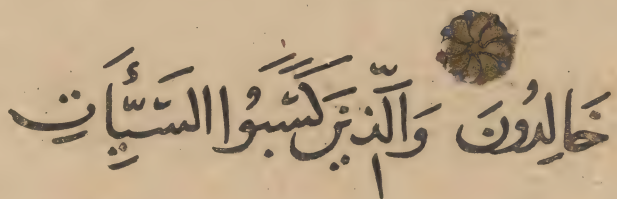 خَالِدُونَ وَالَّذِينَ كَسَبُوا السَّيِّأَتِ